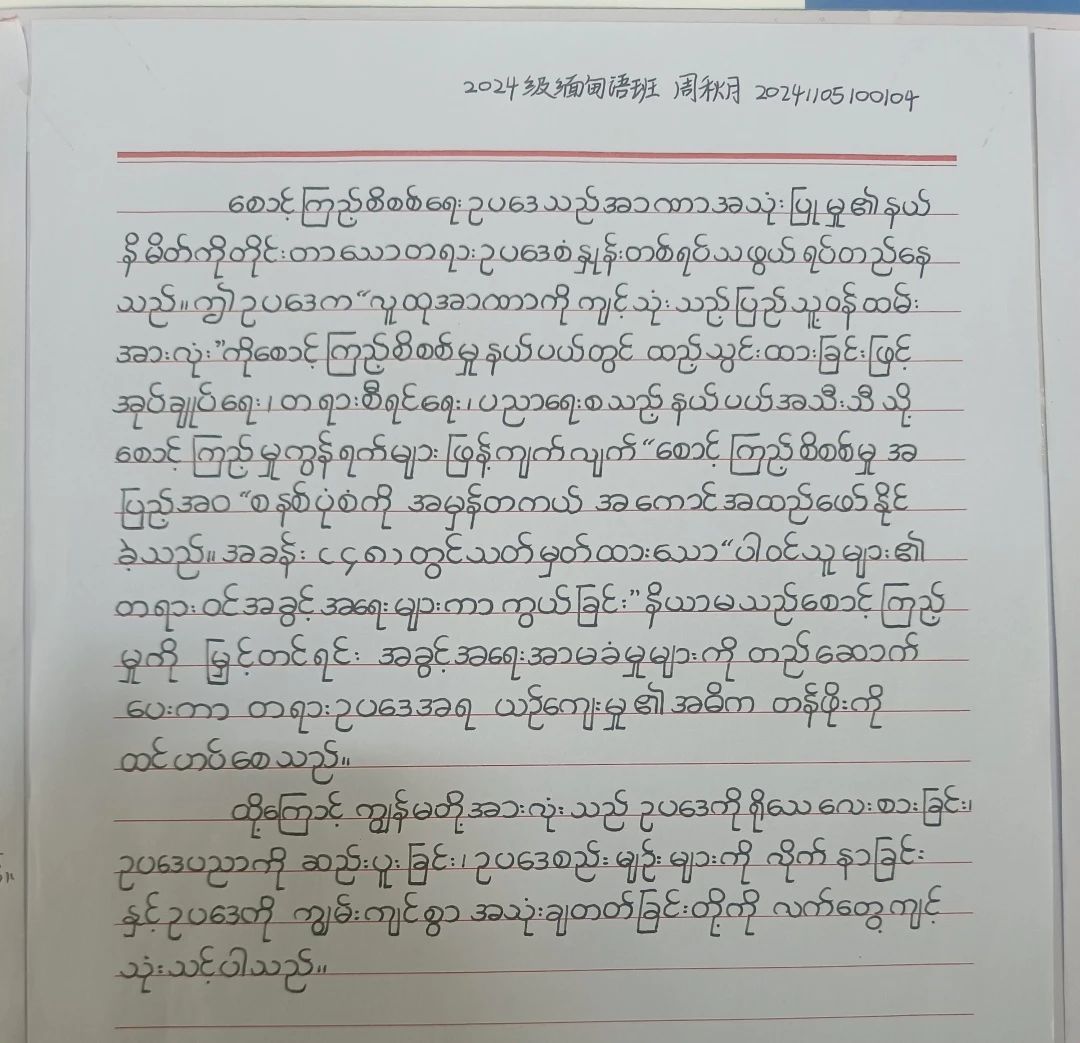 2024级缅甸语班 周秋月 20241105100104
စောင့်ကြည့်စိစစ်ရေးဥပဒေသည်အာဏာအသုံးပြုမှု၏နယ်
နိမိတ်ကိုတိုင်းတာသောတရားဥပဒေစံနှုန်းတစ်ရပ်သဖွယ်ရပ်တည်နေ
သည်။ဤဥပဒေက“လူထုအာဏာကိုကျင့်သုံးသည့်ပြည်သူ့ဝန်ထမ်း
အားလုံး”ကိုစောင့်ကြည့်စိစစ်မှုနယ်ပယ်တွင် ထည့်သွင်းထားခြင်းဖြင့်
အုပ်ချုပ်ရေး၊တရားစီရင်ရေး၊ပညာရေးစသည့်နယ်ပယ်အသီးသီးသို့
စောင့်ကြည့်မှုကွန်ရက်များဖြန့်ကျက်လျက်“စောင့်ကြည့်စိစစ်မှုအ
ပြည့်အဝ“စနစ်ပုံစံကို အမှန်တကယ် အကောင်အထည်ဖော်နိုင်
ခဲ့သည်။အခန်း၄တွင်သတ်မှတ်ထားသော“ပါဝင်သူများ၏
တရားဝင်အခွင့်အရေးများကာကွယ်ခြင်း”နိယာမသည်စောင့်ကြည့်
မှုကို မြှင့်တင်ရင်း အခွင့်အရေးအာမခံမှုများကို တည်ဆောက်
ပေးကာ တရားဥပဒေအရ ယဉ်ကျေးမှု၏အဓိက တန်ဖိုးကို
ထင်ဟပ်စေသည်။
ထို့ကြောင့် ကျွန်မတို့အားလုံးသည် ဥပဒေကိုရိုသေလေးစားခြင်း၊
ဥပဒေပညာကို ဆည်းပူးခြင်း၊ဥပဒေစည်းမျဉ်းများကို လိုက်နာခြင်း
နှင့်ဥပဒေကို ကျွမ်းကျင်စွာ အသုံးချတတ်ခြင်းတို့ကို လက်တွေ့ကျင့်
သုံးသင့်ပါသည်။